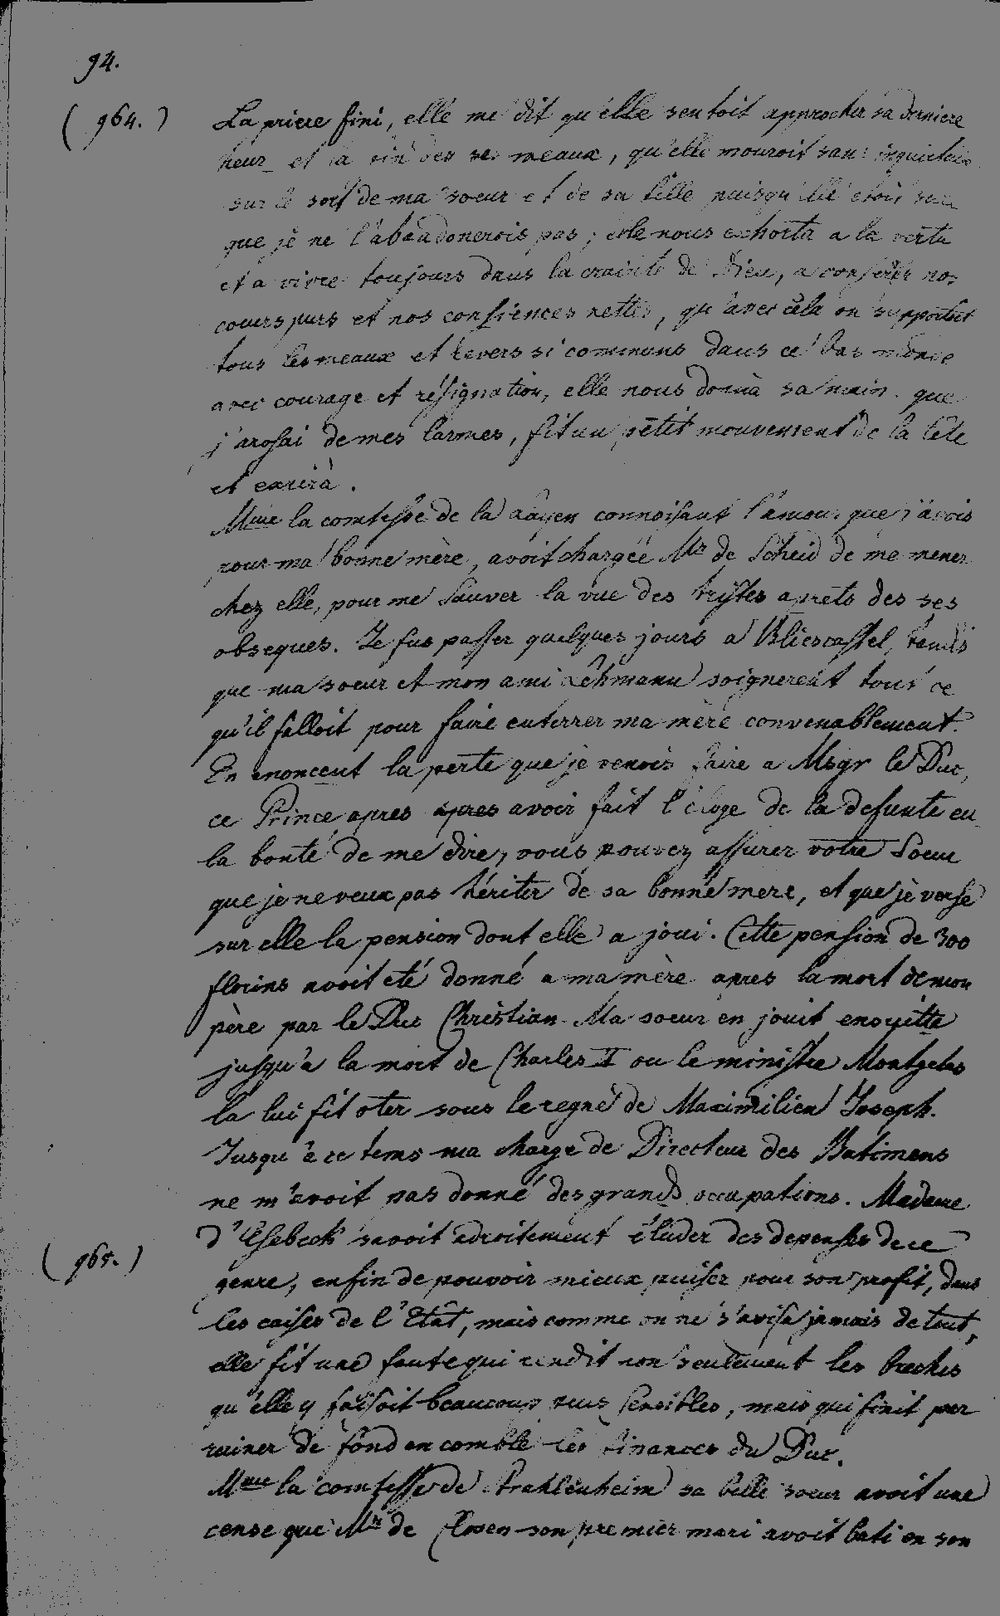 94.
(964.) La priere fini, elle me dit qu'elle sentoit approcher sa derniere
heur et la fin des ses meaux, qu'elle mouroit sans inquietude
sur le sort de ma soeur et de sa fille puisqu'elle etoit sure
que je ne l'abandonerois pas; elle nous exhorta a la vertu
et a vivre toujours dans la crainte de Dieu, a conserver nos
coeurs purs et nos consiences nettes, qu'avec cela on supportoit
tous les meaux et revers si communs dans ce bas monde
avec courage et résignation, elle nous donna sa main que
j'arosai de mes larmes, fit un petit mouvement de la tete
et expira.
Mme la comtesse de la Layen connoisant l'amour que j'avois
pour ma bonne mère, avoit chargée Mr de Scheid de me mener
chez elle, pour me sauver la vue des tristes aprets des ses
obseques. Je fus passer quelques jours a Bliescastel, tandis
que ma soeur et mon ami Lehmann soignerent tout ce
qu'il falloit pour faire enterrer ma mère convenablement.
En enoncent la perte que je venois faire a Msgr le Duc,
ce Prince apres apres avoir fait l'éloge de la defunte eu
la bonté de me dire, vous pouvez assurer votre Soeur
que je ne veux pas hériter de sa bonne mere, et que je verse
sur elle la pension dont elle a joui. Cette pension de 300
florins avoit eté donné a ma mère apres la mort de mon
père par le Duc Christian. Ma soeur en jouit
jusqu'a la mort de Charles II ou le ministre Montgelas
la lui fit oter sous le regne de Maximilien Joseph.
Jusqu'a ce tems ma charge de Directeur des Batimens
ne m'avoit pas donné des grands occupations. Madame
(965.) d'Esebeck savoit adroitement éluder des depenses de ce
genre, enfin de pouvoir mieux puiser pour son profit, dans
les caises de l'Etat, mais comme on ne s'avise jamais de tout,
elle fit une faute qui rendit non seulement les breches
qu'elle y faisoit beaucoup plus sensibles, mais qui finit par
ruiner de fond en comble les finances du Duc.
Mme la comtesse de Strahlenheim sa belle soeur avoit une
cense que Mr de Closen son premier mari avoit bati en son